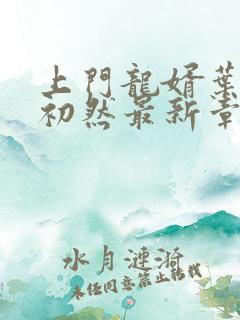 上門龍婿葉
初然最新章
水月漣漪
未任同意禁止转载